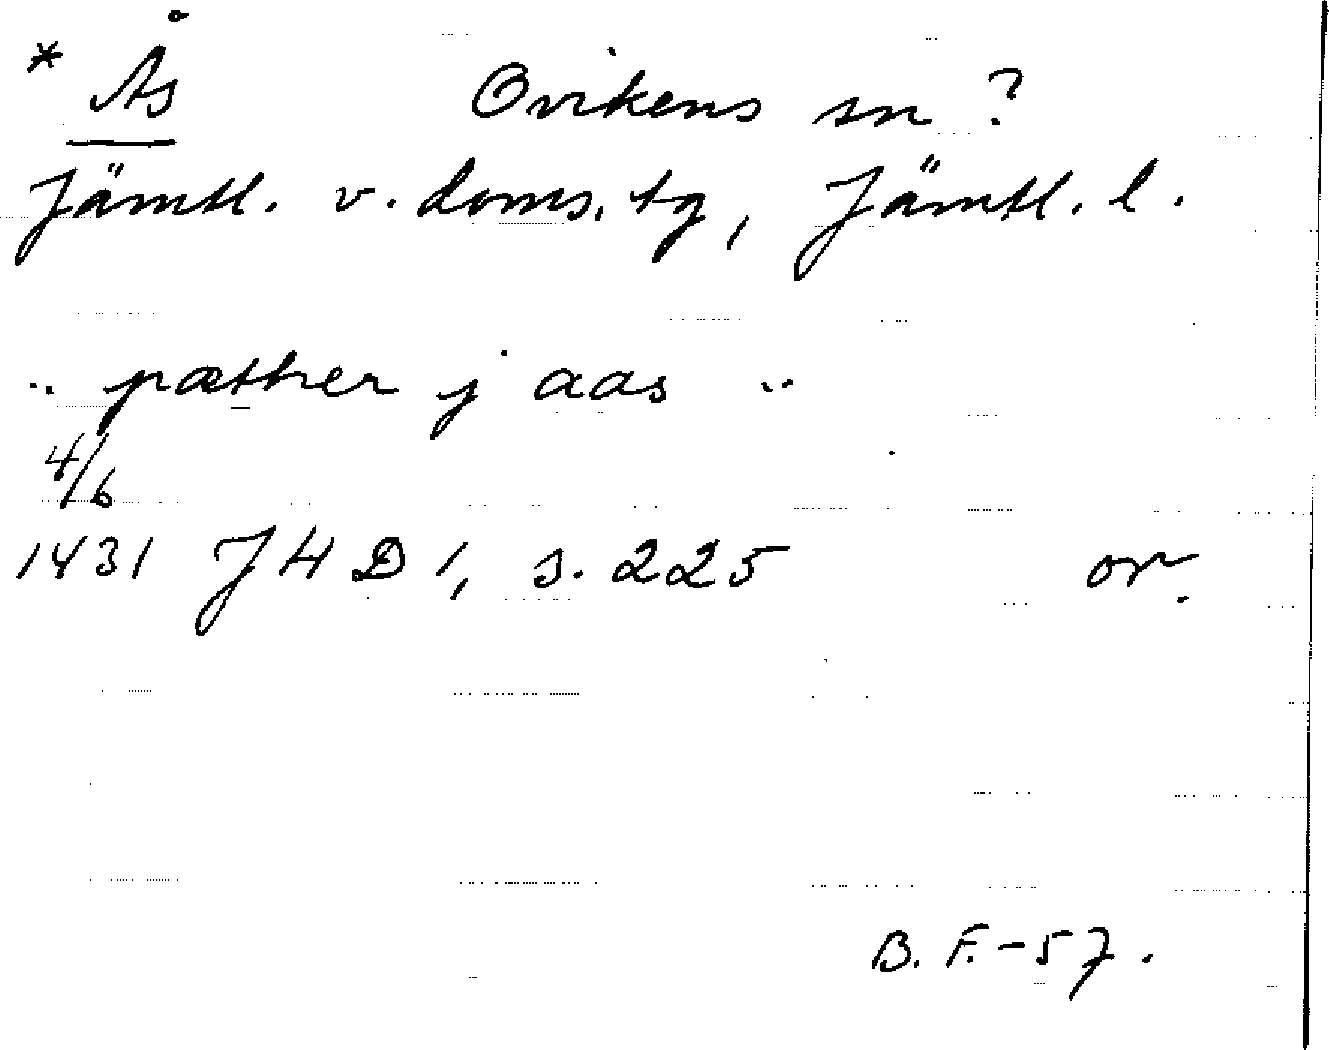 * Ås Ovikens sn ?
Jämtl. v. doms. tg, Jämtl. l.
.. pæther j aas ..
4/6
1431 JHD 1, s. 225 or.
B. F. - 57.